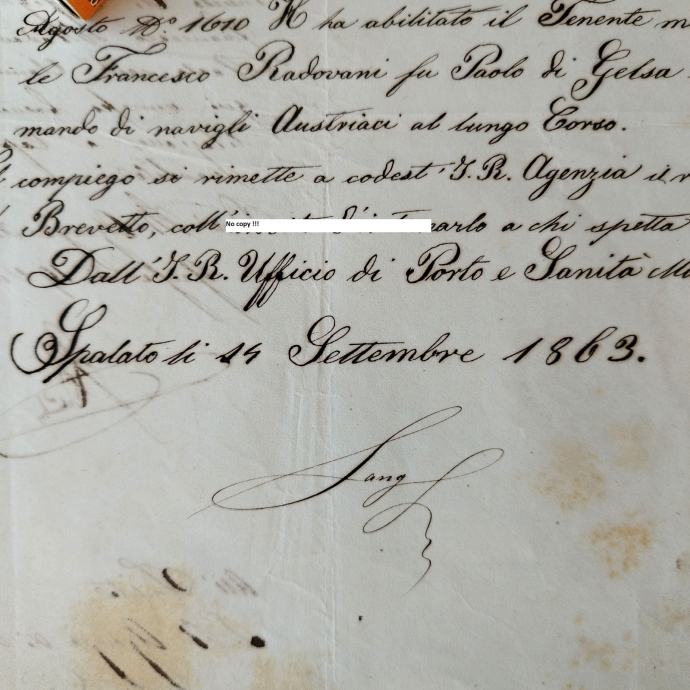 Agosto No 1610 H ha abilitato il Tenente m
le Francesco Radovani fu Paolo di Gelsa
mando di navigli Austriaci al lungo Corso.
compiego si rimette a codest' I. R. Agenzia il r
Brevetto, coll' a chi spetta
No copy !!!
Dall' I. R. Ufficio di Porto e Sanità Ma
Spalato li 14 Settembre 1863.
Lang